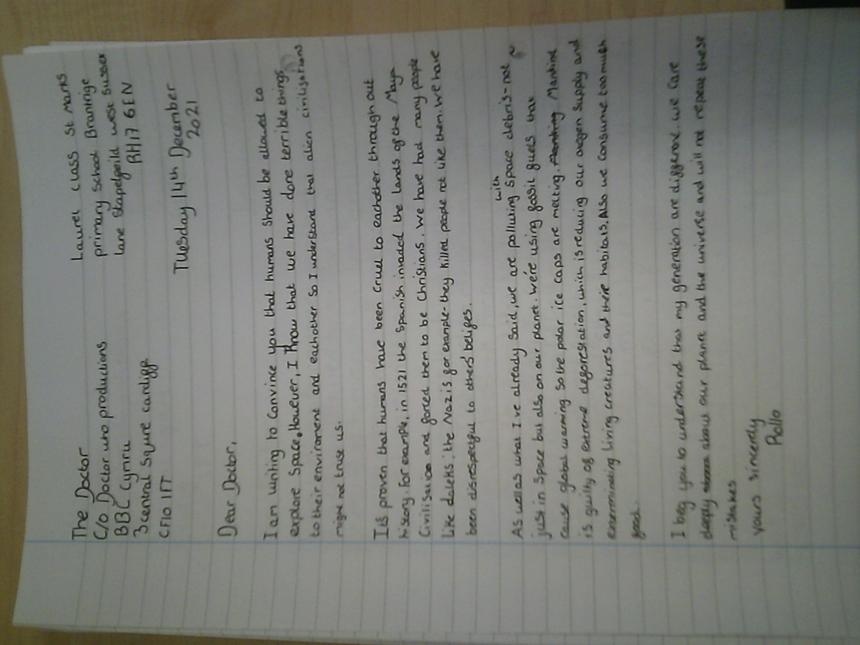 The Doctor
C/o Doctor who productions
BBC Cymru
3 central Squre cardiff
CF10 1FT
Laurel class St Marks
primary School Brantrige
lane Stapelfeild west Sussex
RH17 6EN
Tuesday 14th December
2021
Dear Doctor,
I am writing to Convince you that humans should be allowed to
explore Space. However, I know that we have done terrible things
to their enviroment and eachother so I understand that alien civilisations
might not trust us.
It's proven that humans have been Cruel to eachother through out
history. for example, in 1521 the Spanish invaded the lands of the Maya
Civilisation and forced them to be Christians. We have had many people
like daleks: the Nazis for example- they killed people not like them. We have
been disrespectful to others' beliefs.
As well as what I've already said, we are polluting Space with debris- not
just in Space but also on our planet. We're using fossil fuels that
cause global warming so the polar ice caps are melting. Mankind
is guilty of extreme deforestation, which is reducing our oxegen Supply and
exterminating living creatures and their habitats. Also we consume too much
food.
I beg you to understand that my generation are different. we Care
deeply about our planet and the universe and will not repeat these
mistakes
yours sincerely
Rollo